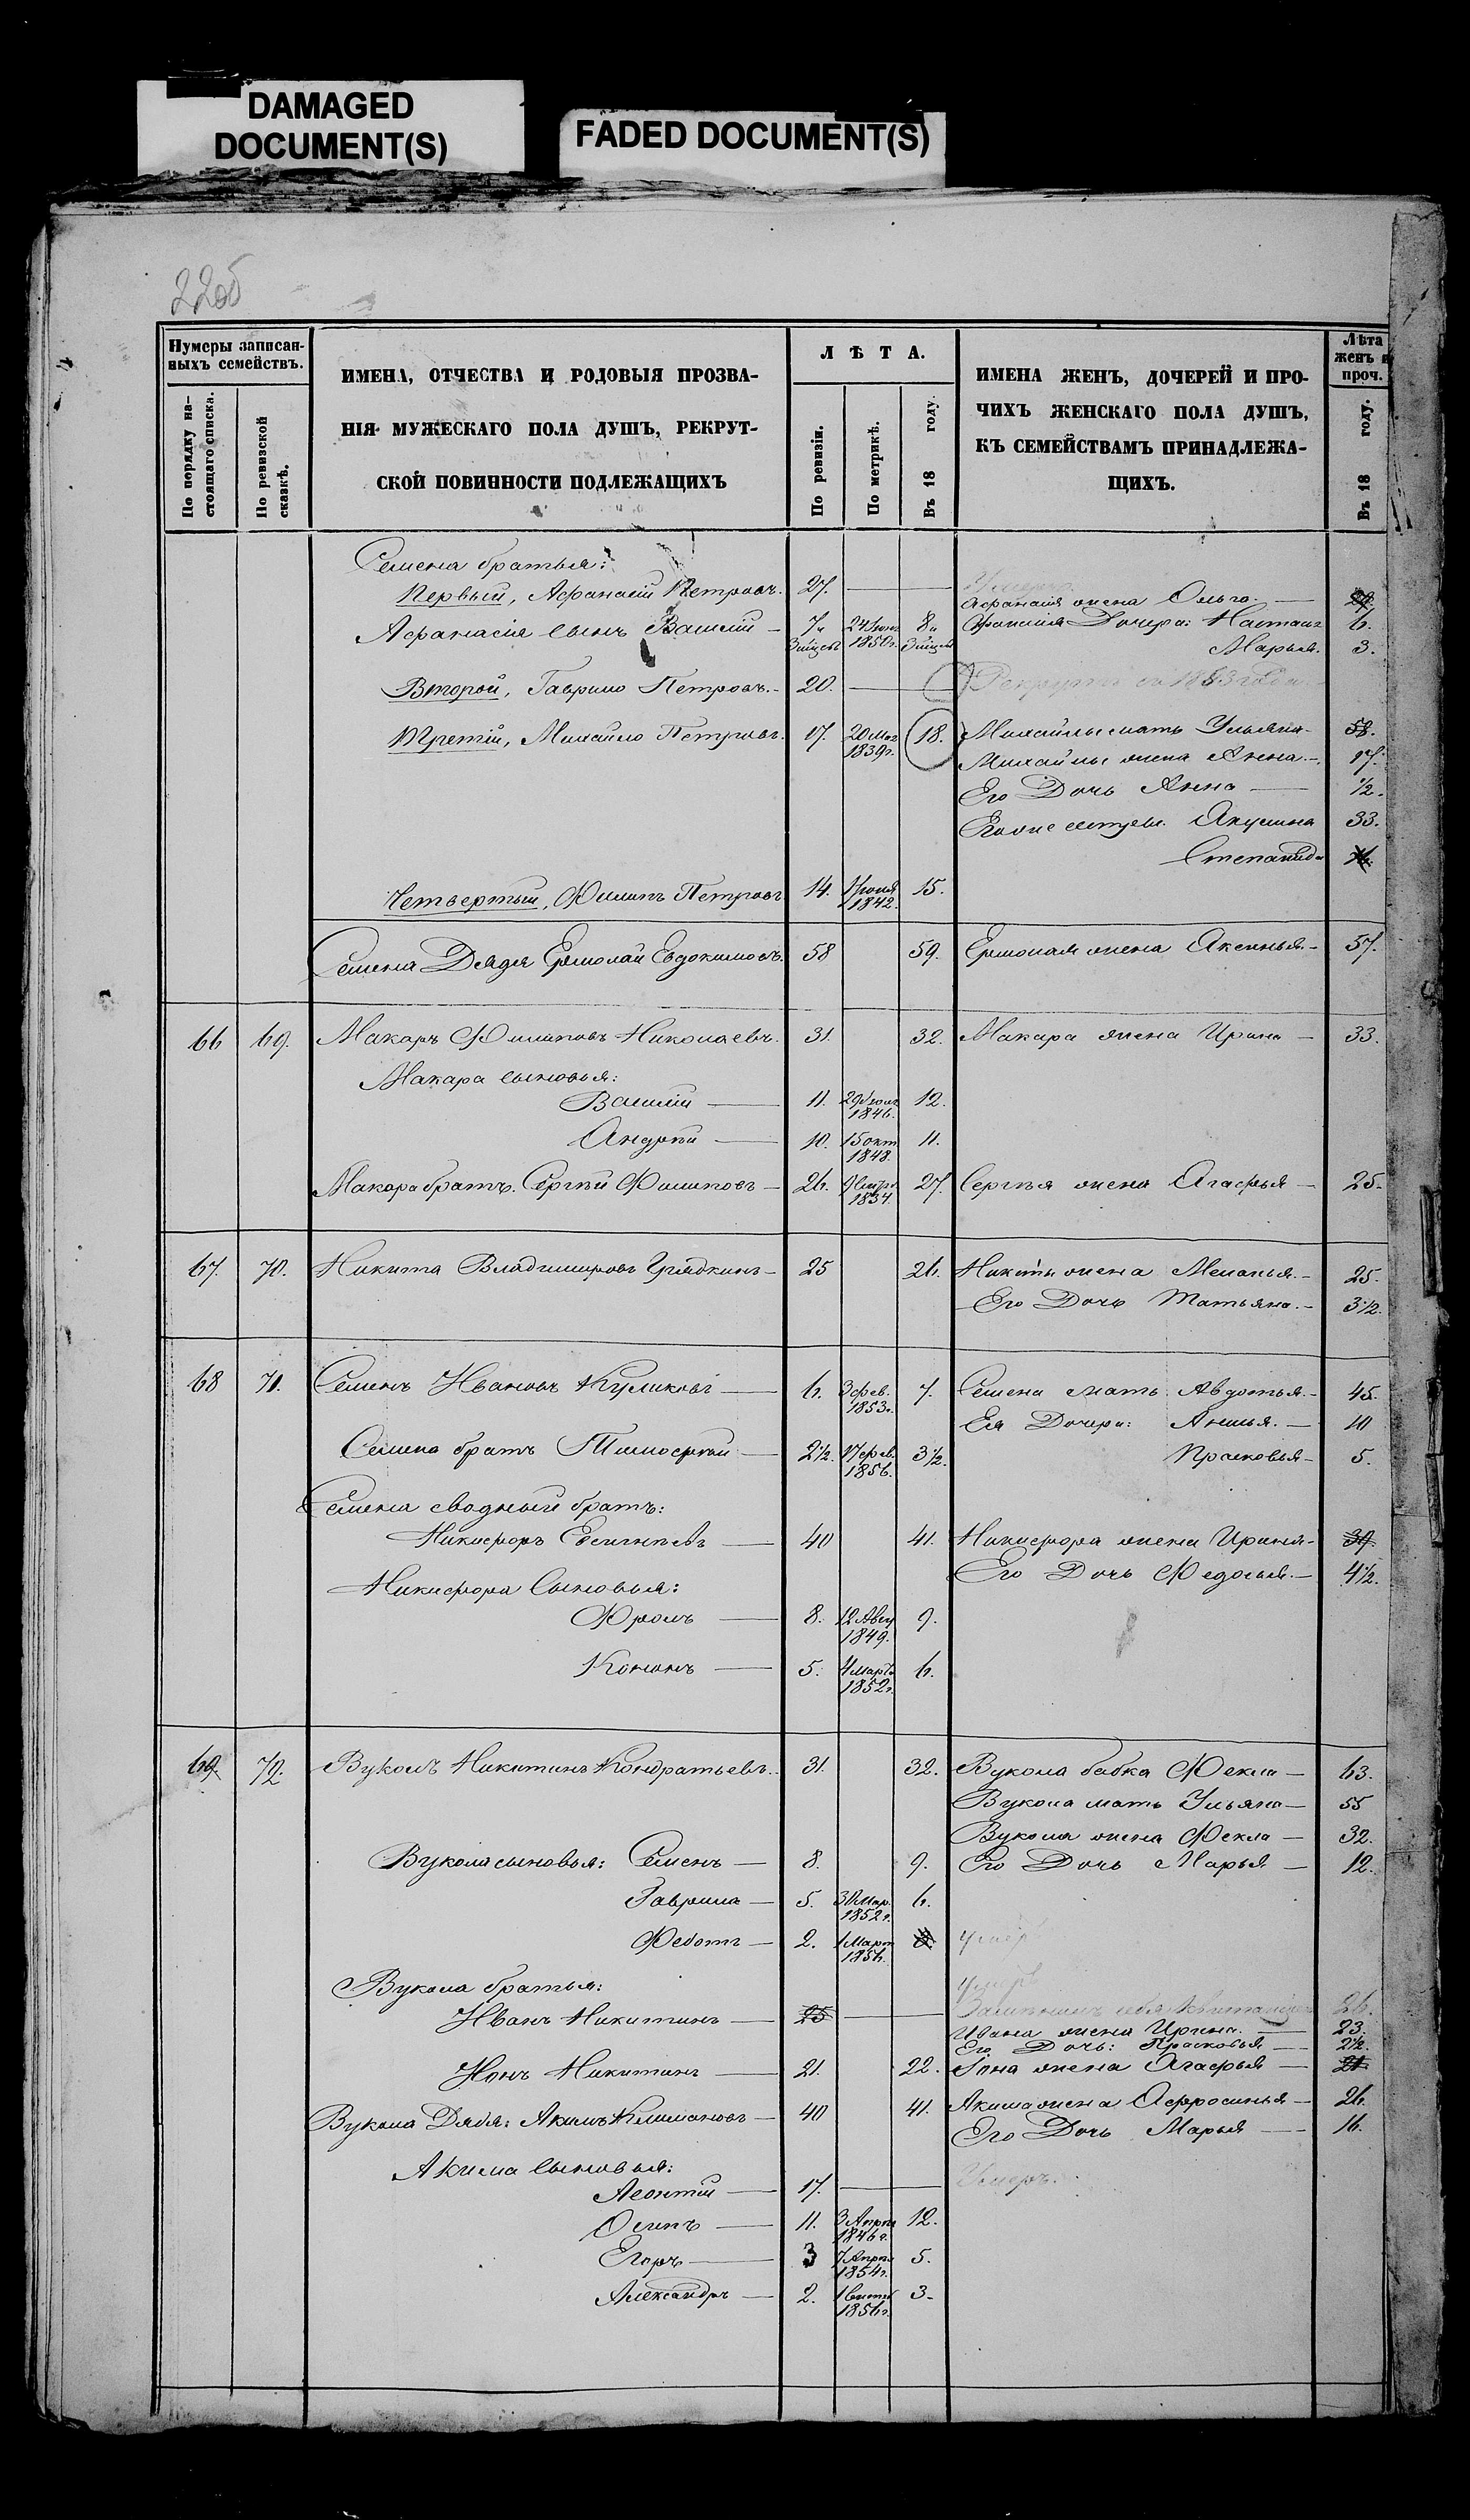 DAMAGED
DOCUMENT(S)
FADED DOCUMENT(S)
22об
Нумеры записан-
ныхъ семействъ.
По порядку на-
стоящаго списка.
По ревизской
сказкѣ.
ИМЕНА, ОТЧЕСТВА И РОДОВЫЯ ПРОЗВА-
НІЯ МУЖЕСКАГО ПОЛА ДУШЪ, РЕКРУТ-
СКОЙ ПОВИННОСТИ ПОДЛЕЖАЩИХЪ
Л Ѣ Т А.
По ревизіи.
По метрикѣ.
Въ 18 году.
ИМЕНА ЖЕНЪ, ДОЧЕРЕЙ И ПРО-
ЧИХЪ ЖЕНСКАГО ПОЛА ДУШЪ,
КЪ СЕМЕЙСТВАМЪ ПРИНАДЛЕЖА-
ЩИХЪ.
Лѣта
женъ и
проч.
Въ 18 году.
Семена братья:
Первый, Афанасій Петровъ. 27. — Умеръ
Афанасія жена Ольга. —
Афанасія сынъ Василій — 7 24 Іюня 1850г. 8 Афанасія Дочери: Настась 6.
Марья. 3.
Второй, Гаврило Петровъ. — 20. — Рекрутъ 1853 года
Третій, Михайло Петровъ. 17. 20 Мая 1839г. 18. Михайлы мать Ульяна — 58.
Михайлы жена Анна. — 17.
Его Дочь Анна — 1/2.
Его же сестры: Акулина 33.
Степанида
Четвертый, Филипъ Петровъ 14. 1842. 15.
Семена Дядя Ермолай Евдокимовъ. 58 59. Ермолая жена Аксинья. — 57.
66 69. Макаръ Филиповъ Николаевъ. 31. 32. Макара жена Ирина — 33.
Макара сыновья:
Василій — 11. 1846. 12.
Андрей — 10. 15 окт 1848. 11.
Макара братъ. Сергѣй Филиповъ — 26. 1834. 27. Сергѣя жена Агафья — 25.
67. 70. Никита Владимировъ — 25 26. Никиты жена Меланья. — 25.
Его Дочь Татьяна. — 3 1/2.
68 71. Семенъ Ивановъ Куликовъ — 6. 3 фев. 1853г. 7. Семена мать Авдотья. — 45.
Ея Дочери: Анисья. — 10
Прасковья — 5.
Семена братъ Тимофѣй — 2 1/2. 17 фев. 1856. 3 1/2.
Семена сводный братъ:
Никифоръ Евсигнѣевъ — 40 41. Никифора жена Ирина — 39
Его Дочь Федосья. — 4 1/2.
Никифора сыновья:
Фролъ — 8. 12 Авгу 1849. 9.
Кононъ — 5. 4 марта 1852г. 6.
69. 72. Вуколъ Никитинъ Кондратьевъ. 31. 32. Вукола бабка Фекла — 63.
Вукола мать Ульяна — 55
Вукола жена Фекла — 32.
Вукола сыновья: Семенъ — 8. 9. Его Дочь Марья — 12.
Гаврила — 5. 30 Мар. 1852г. 6.
Федотъ — 2. 1 Март 1856. умеръ
Вукола братья: умеръ
Иванъ Никитинъ — 25 — 26.
Ивана жена Ирина. — 23.
Его Дочь: Прасковья — 2 1/2.
Іонъ Никитинъ — 21. 22. Іона жена Агафья — 21
Вукола Дядя: Акимъ Климановъ — 40 41. Акима жена Афросинья — 26.
Его Дочь Марья — 16.
Акима сыновья:
Леонтій — 17. — Умеръ.
Осипъ — 11. 3 Апрѣ 1846г. 12.
Егоръ — 3 7 Апрѣ 1854г. 5.
Александръ — 2. 1856г. 3.